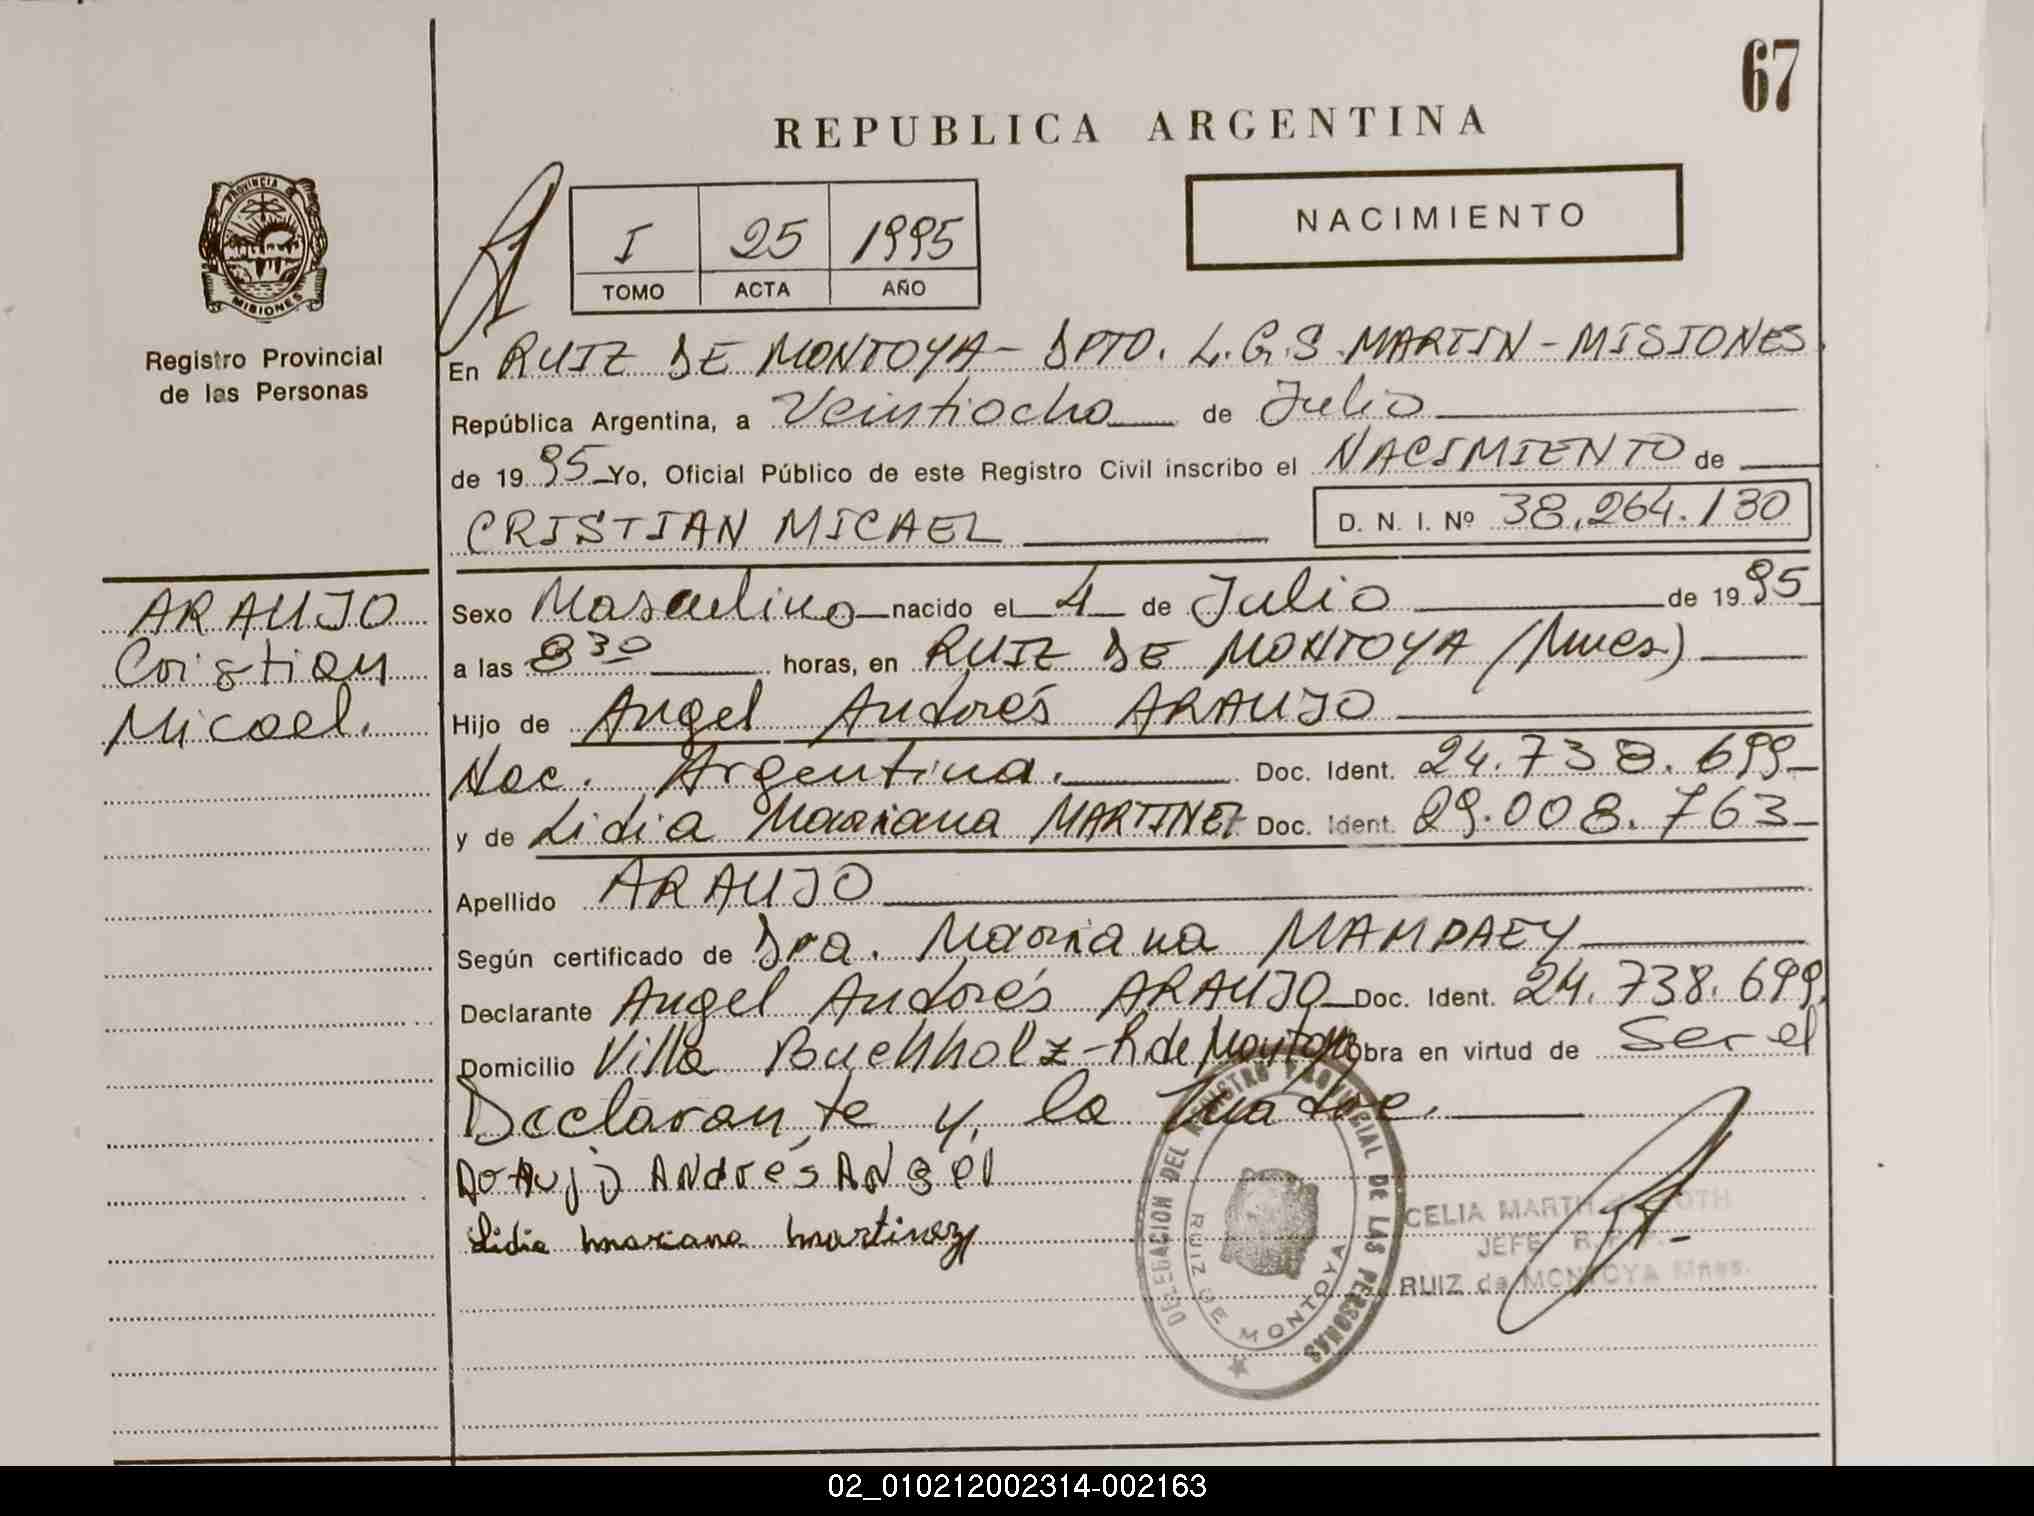 67
REPUBLICA ARGENTINA
PROVINCIA DE
MISIONES
Registro Provincial
de las Personas
I 25 1995
TOMO ACTA AÑO
NACIMIENTO
En RUIZ DE MONTOYA - DPTO. L.G.S. MARTIN - MISIONES
República Argentina, a Veintiocho de Julio
de 1995 Yo, Oficial Público de este Registro Civil inscribo el NACIMIENTO de
CRISTIAN MICAEL D. N. I. Nº 38.264.130
ARAUJO
Cristian
Micael.
Sexo Masculino nacido el 4 de Julio de 1995
a las 8 30 horas, en RUIZ DE MONTOYA (Mnes)
Hijo de Angel Andrés ARAUJO
Nac. Argentina. Doc. Ident. 24.738.699
y de Lidia Mariana MARTINEZ Doc. Ident. 29.008.763
Apellido ARAUJO
Según certificado de Dra. Mariana
Declarante Angel Andrés ARAUJO Doc. Ident. 24.738.699.
Domicilio Villa Buchholz - R de Montoya Obra en virtud de Ser el
Declarante y la madre.
Araujo ANdrés ANgel
Lidia mariana martinez
DELEGACION DEL REGISTRO PROVINCIAL DE LAS PERSONAS
RUIZ DE MONTOYA
CELIA MARTH
JEFE R.P.P.
RUIZ de MONTOYA Mnes.
02_010212002314-002163